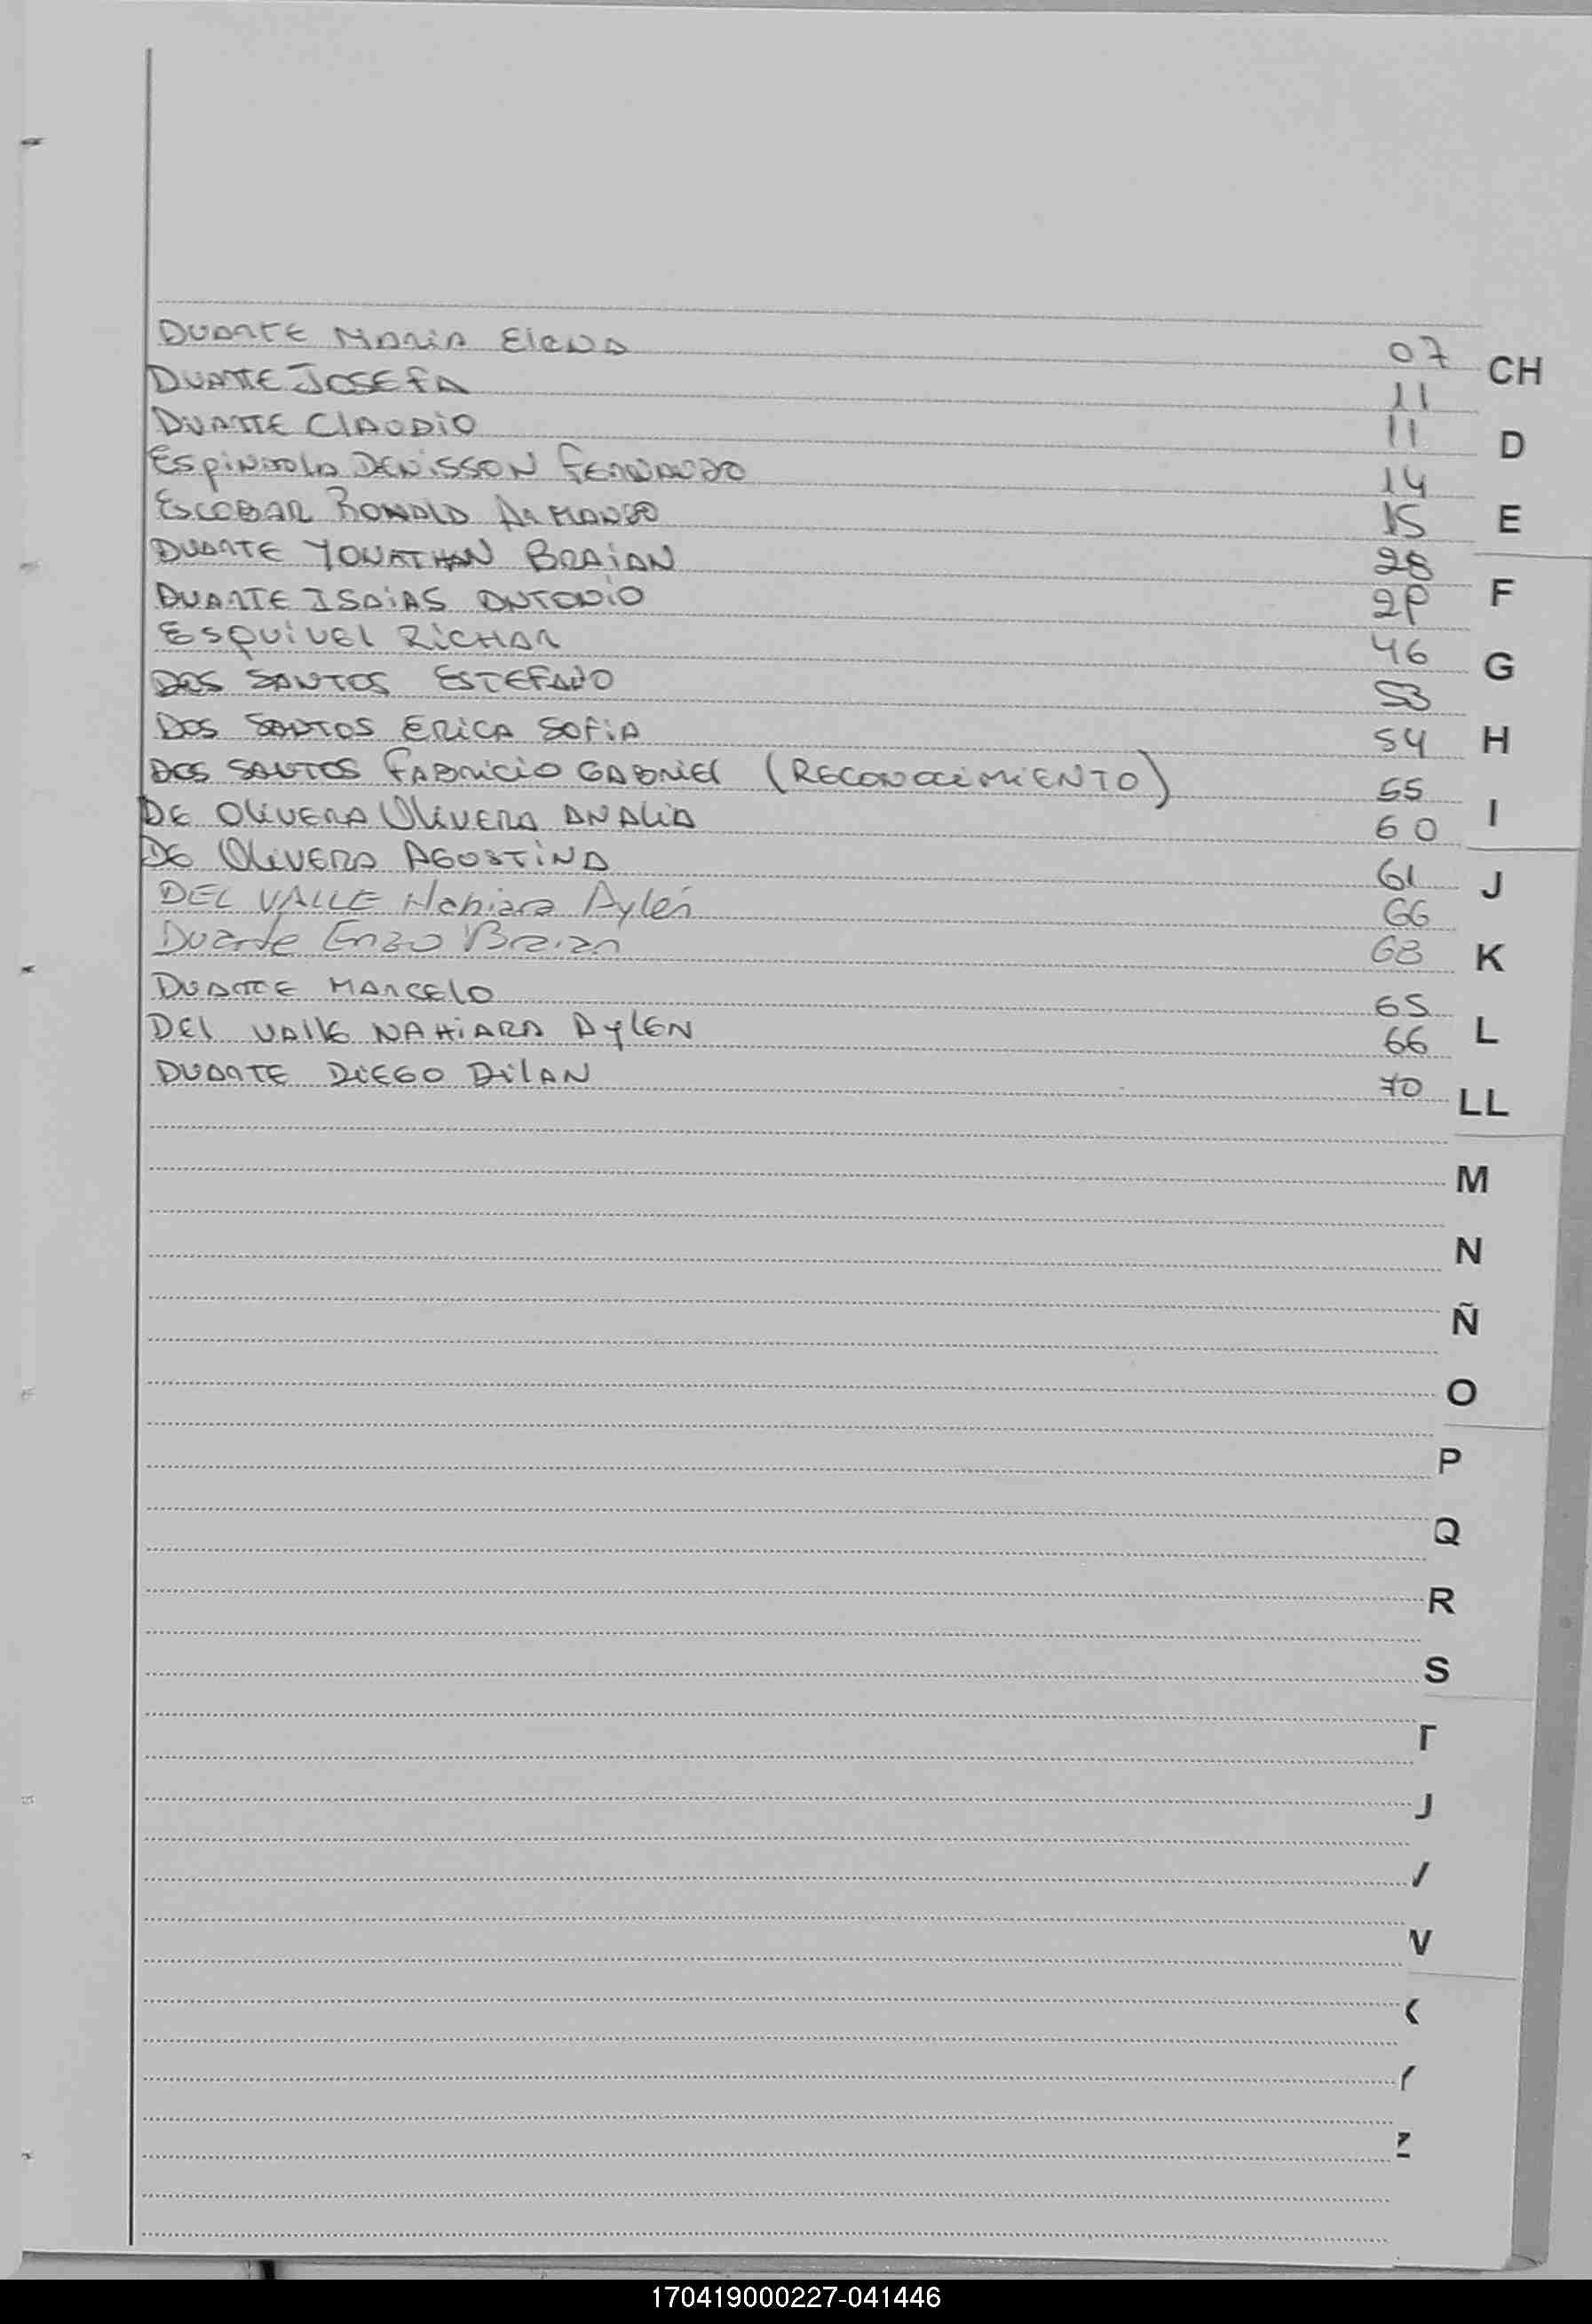 DUARTE MARIA ElENA 07
CH
DUARTE JOSEFA 11
DUARTE ClAUDIO 11
D
ESpINDOlA DENISSON FERNANDO 14
ESCOBAR RONALD ARMANDO 15
E
DUARTE YONATHAN BRAIAN 28
DUARTE ISAIAS ANTONIO 29
F
ESQUIVEl RICHAR 46
G
DOS SANTOS ESTEFANO 53
DOS SANTOS ERICA SOFIA 54
H
DOS SANTOS FABRICIO GABRIEl (RECONOCIMIENTO) 55
I
DE OlIVERA OlIVERA ANALIA 60
DE OlIVERA AGOSTINA 61
J
DEL VALLE Nahiara Aylén 66
Duarte Enzo Braian 68
K
DUARTE MARCElO 65
DEl VAllE NAHIARA AylEN 66
L
DUARTE DIEGO DIlAN 70
LL
M
N
Ñ
O
P
Q
R
S
Z
170419000227-041446